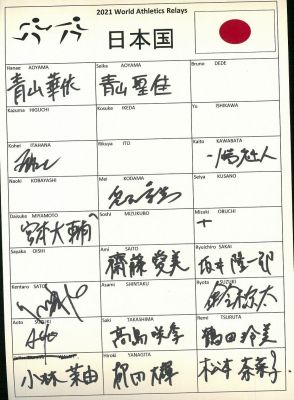 2021 World Athletics Relays
日本国
Hanae AOYAMA Seika AOYAMA Bruno DEDE
青山華依 青山聖佳
Kazuma HIGUCHI Kosuke IKEDA Yo ISHIKAWA
Kohei ITAHANA Rikuya ITO Kaito KAWABATA
川端魁人
Naoki KOBAYASHI Mei KODAMA Seiya KUSANO
Daisuke MIYAMOTO Soshi MIZUKUBO Mizuki OBUCHI
宮本大輔
Sayaka OISHI Ami SAITO Ryuichiro SAKAI
齋藤愛美 坂井隆一郎
Kentaro SATO Asami SHINTAKU Ryota SUZUKI
Aoto SUZUKI Saki TAKASHIMA Remi TSURUTA
髙島咲季 鶴田玲美
Hiroki YANAGITA
小林茉由 柳田大輝 松本奈菜子